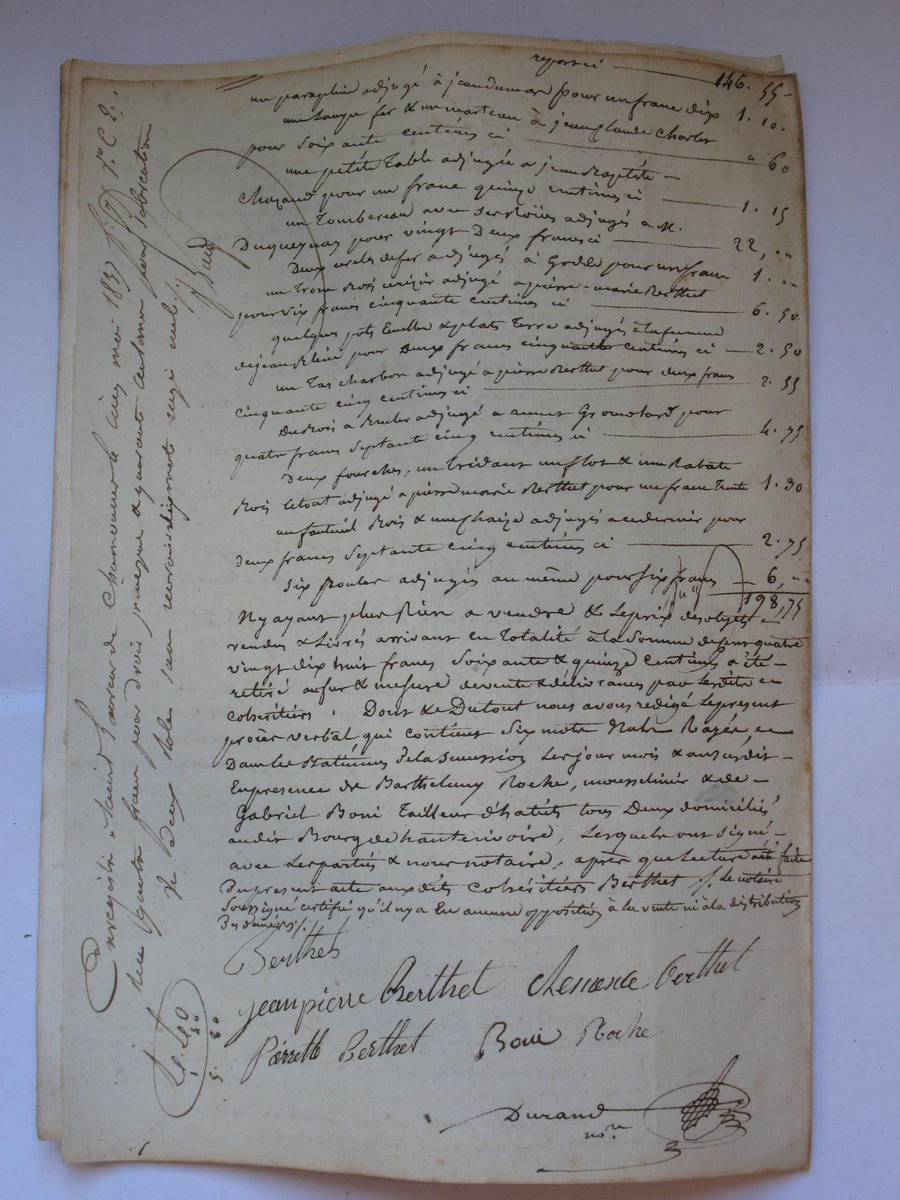 reporté 146. 55
un parapluie adjugé à jean dumas pour un franc dix 1. 10.
une loupe fer & un marteau à jean claude Charles
pour soixante centimes ci " 60
une petite Table adjugée a jean Baptiste
Chazaud pour un franc quinze centimes ci 1. 15
un Tombereau avec ses adjugés a M.
Duqueynas pour vingt Deux francs ci 22, "
Deux cercles de fer adjugés à pour un franc 1. "
un Trone Bois adjugé a pierre-marie Berthet
pour six francs cinquante centimes ci 6. 50
quelques pots & plats Terre adjugés à la femme
de jean pour Deux francs cinquante centimes ci 2. 50
un Tas charbon adjugé a pierre Berthet pour deux francs
cinquante cinq centimes ci 2. 55
Du Bois a Bruler adjugé a annet Gromolard pour
quatre francs septante cinq centimes ci 4. 75
Deux fourches, un Tridant un & une Rabate
Bois le tout adjugé a pierre marie Berthet pour un franc Trente 1. 30
un fauteuil Bois & une Chaize adjugés a ce dernier pour
deux francs Septante cinq centimes ci 2. 75
Six Poules adjugés au même pour six francs 6, "
198, 75
N'y ayant plus Rien a vendre & Le prix des objets
vendus & Livrés arrivant en Totalité à la Somme de cent quatre
vingt dix huit francs Soixante & quinze Centimes a été
retiré au fur & mesure de vente & délivrances par les dits
cohéritiers. Dont & Du tout nous avons redigé le present
procès verbal qui contient Six mots Nuls Rayés,
Dans les Batimens de la Succession Les jour mois & an susdits
En presence de Barthelemy Roche, mousselinier & de
Gabriel Boni Tailleur d'habits tous Deux domiciliés
au dit Bourg de hauterivoire, Lesquels ont Signé
avec Les parties & nous notaire, après que Lecture a été faite
Du present acte aux dits Cohéritiers Berthet ./. Le notaire
Soussigné certifie qu'il n'y a Eu aucune opposition à la vente ni à la distribution
De deniers ./.
Berthet
jean pierre Berthet Clemence Berthet
Pierrette Berthet Boni Roche
Durand
no.re
Enregistré à Saint Laurent de Chamousset le mai 1837 f.
Reçu quatre francs pour droit principal & quarante centimes pour subrogation
& Deux Roles sans renvois dix mots rayés nuls ./.
4. 40